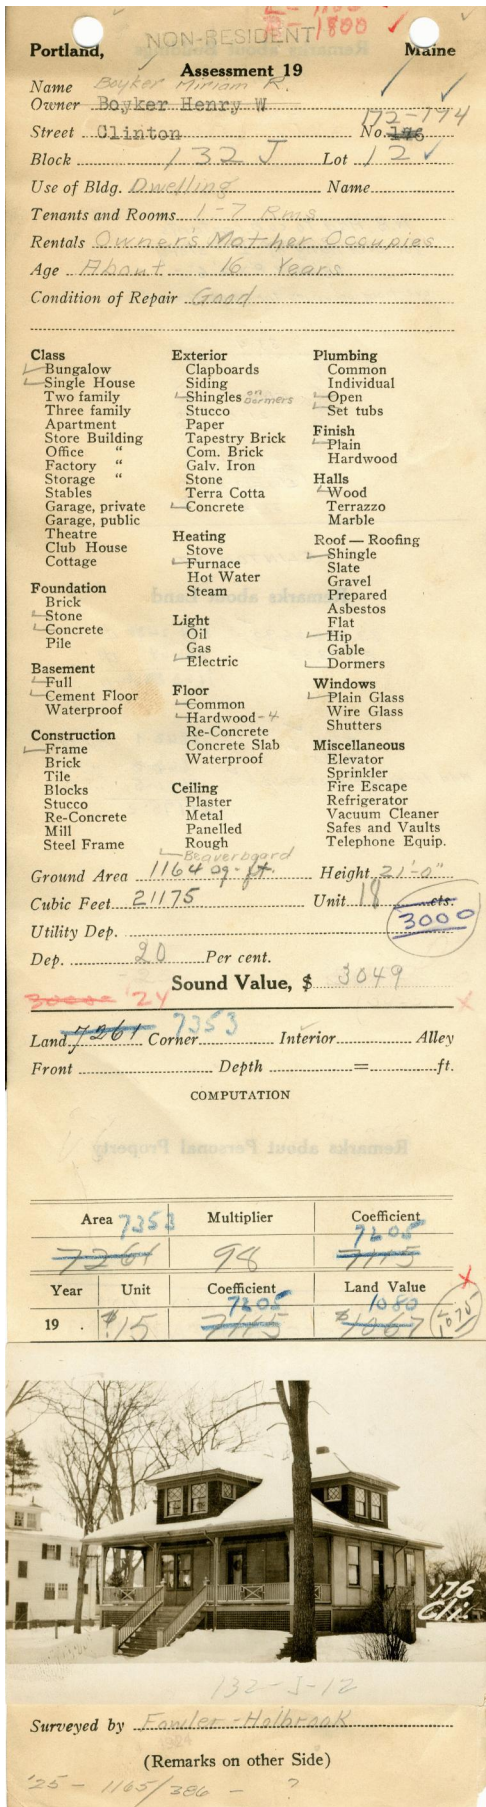 L - 1165
B - 1800
NON-RESIDENT
Portland, Maine
Assessment 19
Name Boyker Miriam R.
Owner Boyker Henry W
172-174
Street Clinton No. 176
Block 132 J Lot 12
Use of Bldg. Dwelling Name
Tenants and Rooms 1-7 Rms
Rentals Owner's Mother Occupies
Age About 16 Years
Condition of Repair Good
Class
Bungalow
Single House
Two family
Three family
Apartment
Store Building
Office "
Factory "
Storage "
Stables
Garage, private
Garage, public
Theatre
Club House
Cottage
Foundation
Brick
Stone
Concrete
Pile
Basement
Full
Cement Floor
Waterproof
Construction
Frame
Brick
Tile
Blocks
Stucco
Re-Concrete
Mill
Steel Frame
Exterior
Clapboards
Siding
Shingles on Dormers
Stucco
Paper
Tapestry Brick
Com. Brick
Galv. Iron
Stone
Terra Cotta
Concrete
Heating
Stove
Furnace
Hot Water
Steam
Light
Oil
Gas
Electric
Floor
Common
Hardwood - 4
Re-Concrete
Concrete Slab
Waterproof
Ceiling
Plaster
Metal
Panelled
Rough
Beaverboard
Plumbing
Common
Individual
Open
Set tubs
Finish
Plain
Hardwood
Halls
Wood
Terrazzo
Marble
Roof — Roofing
Shingle
Slate
Gravel
Prepared
Asbestos
Flat
Hip
Gable
Dormers
Windows
Plain Glass
Wire Glass
Shutters
Miscellaneous
Elevator
Sprinkler
Fire Escape
Refrigerator
Vacuum Cleaner
Safes and Vaults
Telephone Equip.
Ground Area 1164 sq-ft. Height 21'-0"
Cubic Feet 21175 Unit 18 cts.
3000
Utility Dep.
Dep. 20 Per cent.
Sound Value, $ 3049
3000 24
Land 7261 7353 Corner Interior Alley
Front Depth = ft.
COMPUTATION
Area 7353 Multiplier Coefficient
7205
7261 98 7115
Year Unit Coefficient Land Value
7205 1080
19 . $.15 7115 $1067 1075
176
Cli.
132-J-12
Surveyed by Fowler-Holbrook
(Remarks on other Side)
'25 - 1165/386 - ?